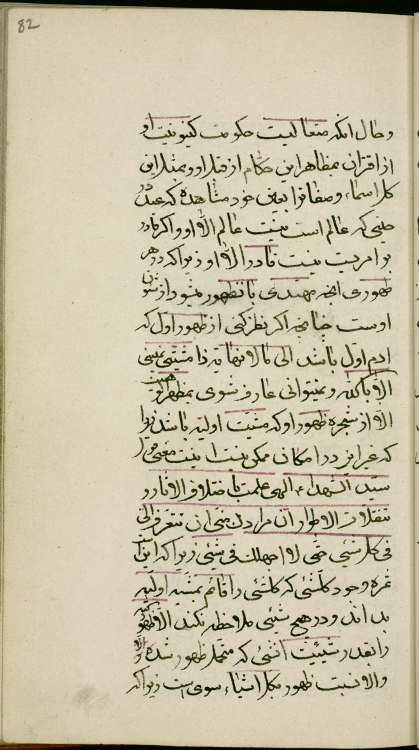 82
و حال آنکه متعالیست حکومت کینونیت او
از اقتران بمظاهر این حکام از قبل او و بمثل این
کل اسماء و صفات را بعین خود مشاهده که عبد در
حینی که عالم است نیست عالم الا او و اگر قادر
بر امریست نیست قادر الا او زیرا که در هر
ظهوری آنچه مهتدی بآن ظهور میشود از شئون
اوست چنانچه اگر نظر کنی از ظهور اول که
آدم اول باشد الی ما لا نهایه ذا مشیتی نمی‌بینی
الا بالله و نمیتوانی عارف شوی بمظهر مشیت
الا از شجره ظهور او که مشیت اولیه باشد زیرا
که غیر از این در امکان ممکن نیست اینست معنی قول
سید الشهداء الهی علمت باختلاف الاثار و
تنقلات الاطوار ان مرادك منی ان تتعرف الی
فی کل شیئی حتی لا اجهلك فی شیئ زیرا که این است
ثمره وجود کلشئی که کلشئی را قائم بمشیت اولیه
بداند و در هیچ شیئی ملاحظه نکند الا ظهور
را بقدر شیئیت آن شئی که متحمل ظهور شده
والا نسبت ظهور بکل اشیاء سوی است زیرا که